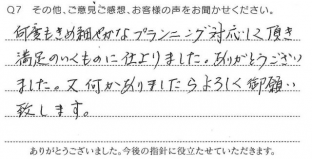 Q7 その他、ご意見ご感想、お客様の声をお聞かせください。
何度もきめ細やかなプランニング対応して頂き
満足のいくものに仕上りました。ありがとうござい
ました。又何かありましたらよろしく御願い
致します。
ありがとうございました。今後の指針に役立たせていただきます。